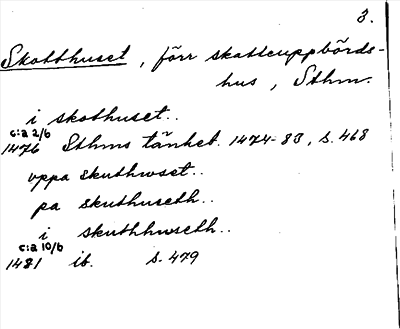 3.
Skotthuset, förr skatteuppbörds-
hus, Sthm.
i skothuset..
c:a 2/6
1476 Sthms tänkeb. 1474-83, s. 468
uppa skuthwset..
pa skuthuseth..
i skuthhwseth..
c:a 10/6
1481 ib. s. 479